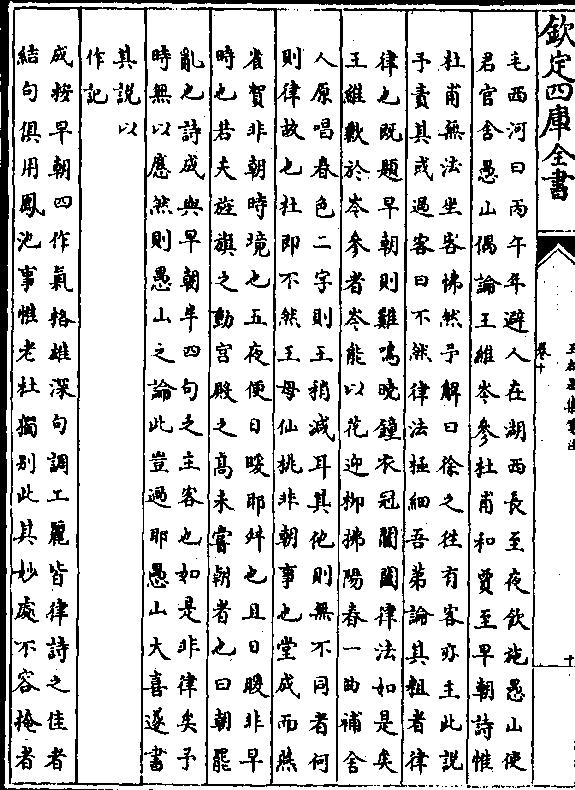 欽定四庫全書
卷十
十
毛西河曰丙午年避人在湖西長至夜飲施愚山使
君官舍愚山偶論王維岑參杜甫和賈至早朝詩惟
杜甫無法坐客怫然予解曰徐之往有客亦主此說
予責其或過客曰不然律法極細吾弟論其粗者律
律也既題早朝則雞鳴曉鐘衣冠閶闔律法如是矣
王維歉於岑參者岑能以花迎柳拂陽春一曲補舍
人原唱春色二字則王稍減耳其他則無不同者何
則律故也杜即不然王母仙桃非朝事也堂成而燕
雀賀非朝時境也五夜便日暖耶舛也且日暖非早
時也若夫旌旗之動宮殿之高未嘗朝者也曰朝罷
亂也詩成與早朝半四句之主客也如是非律矣予
時無以應然則愚山之論此豈過耶愚山大喜遂書
其說以
作記
成按早朝四作氣格雄深句調工麗皆律詩之佳者
結句俱用鳳池事惟老杜獨別此其妙處不容掩者